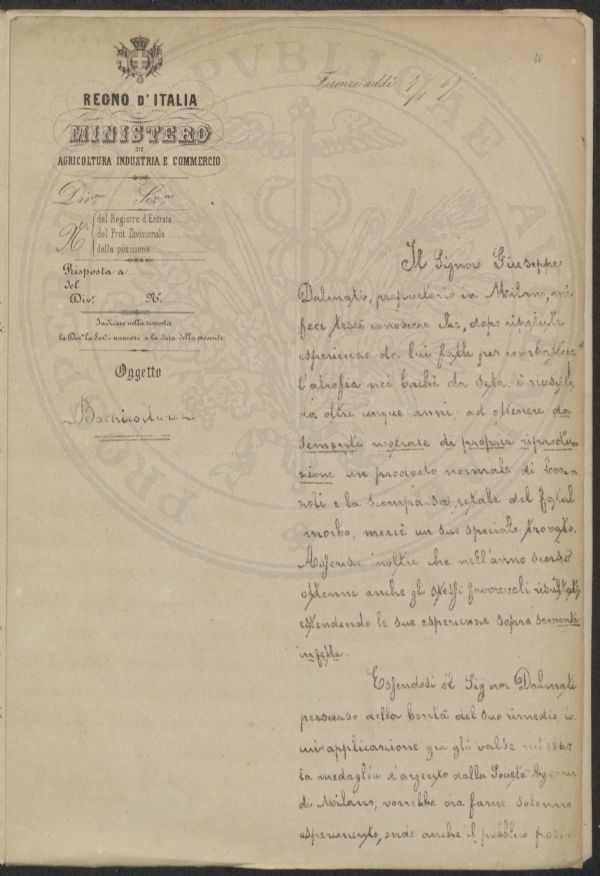 4
Firenze addì
REGNO D'ITALIA
MINISTERO
DI
AGRICOLTURA INDUSTRIA E COMMERCIO
Div.ne Sez.ne
N.
del Registro d'Entrata
del Prot. Divisionale
della posizione
Risposta a
del
Div.e N.o
Indicare nella risposta
la Div.e la Sez.e i numeri e la data della presente
Oggetto
Bachicoltura
Il Signor Giuseppe
Dalmatio, proprietario in Milano, mi
fece testè conoscere che, dopo ripetute
esperienze da lui fatte per combattere
l'atrofia nei bachi da seta è riuscito
da oltre cinque anni ad ottenere da
semente nostrale di propria riprodu-
zione un prodotto normale di boz-
zoli e la scomparsa totale del fatal
morbo, mercè un suo speciale trovato.
Asserisce inoltre che nell'anno scorso
ottenne anche gli stessi favorevoli risultati
estendendo le sue esperienze sopra semente
infetta.
Essendosi il Signor Dalmatio
persuaso della bontà del suo rimedio la
cui applicazione già gli valse nel
la medaglia d'argento dalla Società
di Milano, vorrebbe ora farne solenne
esperimento, onde anche il pubblico possa
PVBLICAE